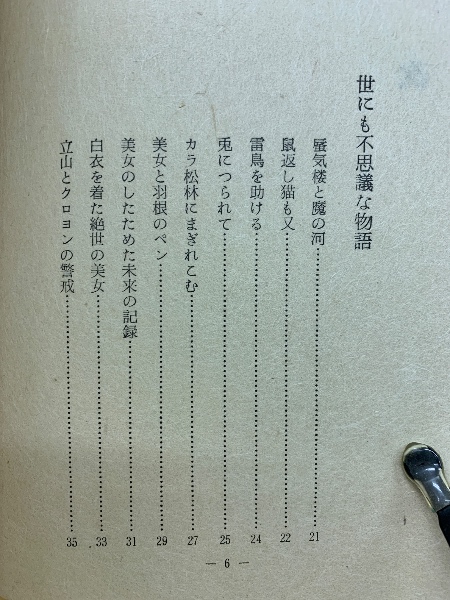 世にも不思議な物語
蜃気楼と魔の河……………………21
鼠返し猫も又……………………22
雷鳥を助ける……………………24
兎につられて……………………25
カラ松林にまぎれこむ……………………27
美女と羽根のペン……………………29
美女のしたためた未来の記録……………………31
白衣を着た絶世の美女……………………33
立山とクロヨンの警戒……………………35
— 6 —